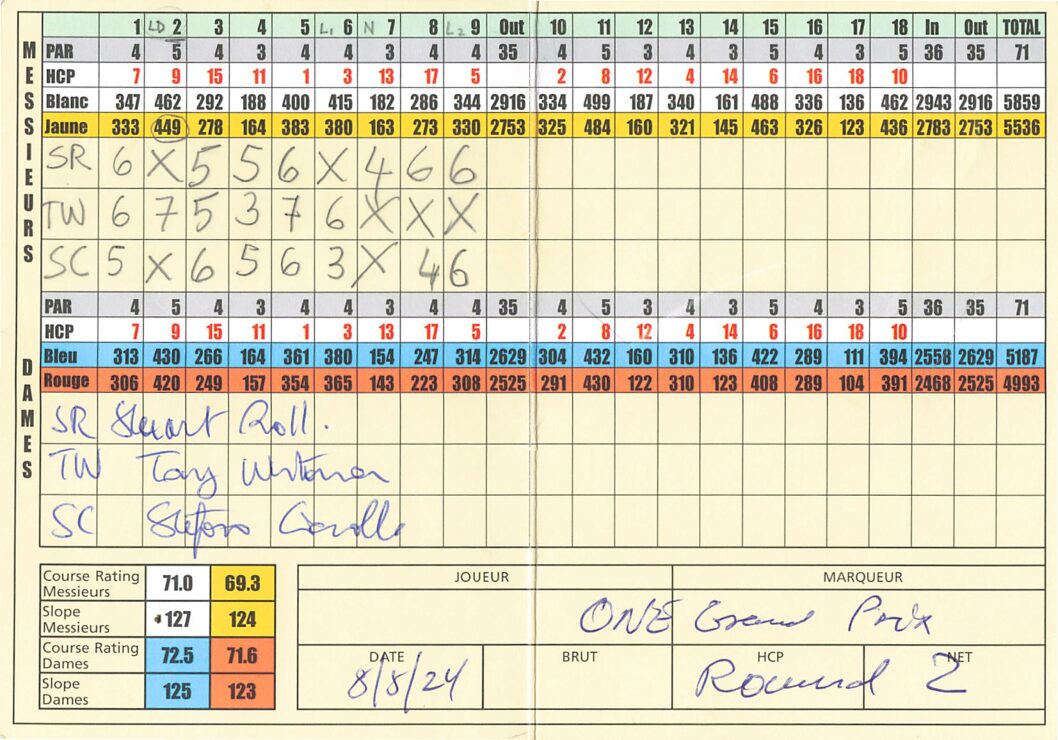 1 LD 2 3 4 5 L1 6 N 7 8 L2 9 Out 10 11 12 13 14 15 16 17 18 In Out TOTAL
MESSIEURS
PAR 4 5 4 3 4 4 3 4 4 35 4 5 3 4 3 5 4 3 5 36 35 71
HCP 7 9 15 11 1 3 13 17 5 2 8 12 4 14 6 16 18 10
Blanc 347 462 292 188 400 415 182 286 344 2916 334 499 187 340 161 488 336 136 462 2943 2916 5859
Jaune 333 449 278 164 383 380 163 273 330 2753 325 484 160 321 145 463 326 123 436 2783 2753 5536
SR 6 X 5 5 6 X 4 6 6
TW 6 7 5 3 7 6 X X X
SC 5 X 6 5 6 3 X 4 6
DAMES
PAR 4 5 4 3 4 4 3 4 4 35 4 5 3 4 3 5 4 3 5 36 35 71
HCP 7 9 15 11 1 3 13 17 5 2 8 12 4 14 6 16 18 10
Bleu 313 430 266 164 361 380 154 247 314 2629 304 432 160 310 136 422 289 111 394 2558 2629 5187
Rouge 306 420 249 157 354 365 143 223 308 2525 291 430 122 310 123 408 289 104 391 2468 2525 4993
SR Stewart Roll.
TW Tony
SC Stefano
Course Rating Messieurs 71.0 69.3
Slope Messieurs 127 124
Course Rating Dames 72.5 71.6
Slope Dames 125 123
JOUEUR MARQUEUR
ONE Grand Prix
DATE BRUT HCP NET
8/8/24 Round 2